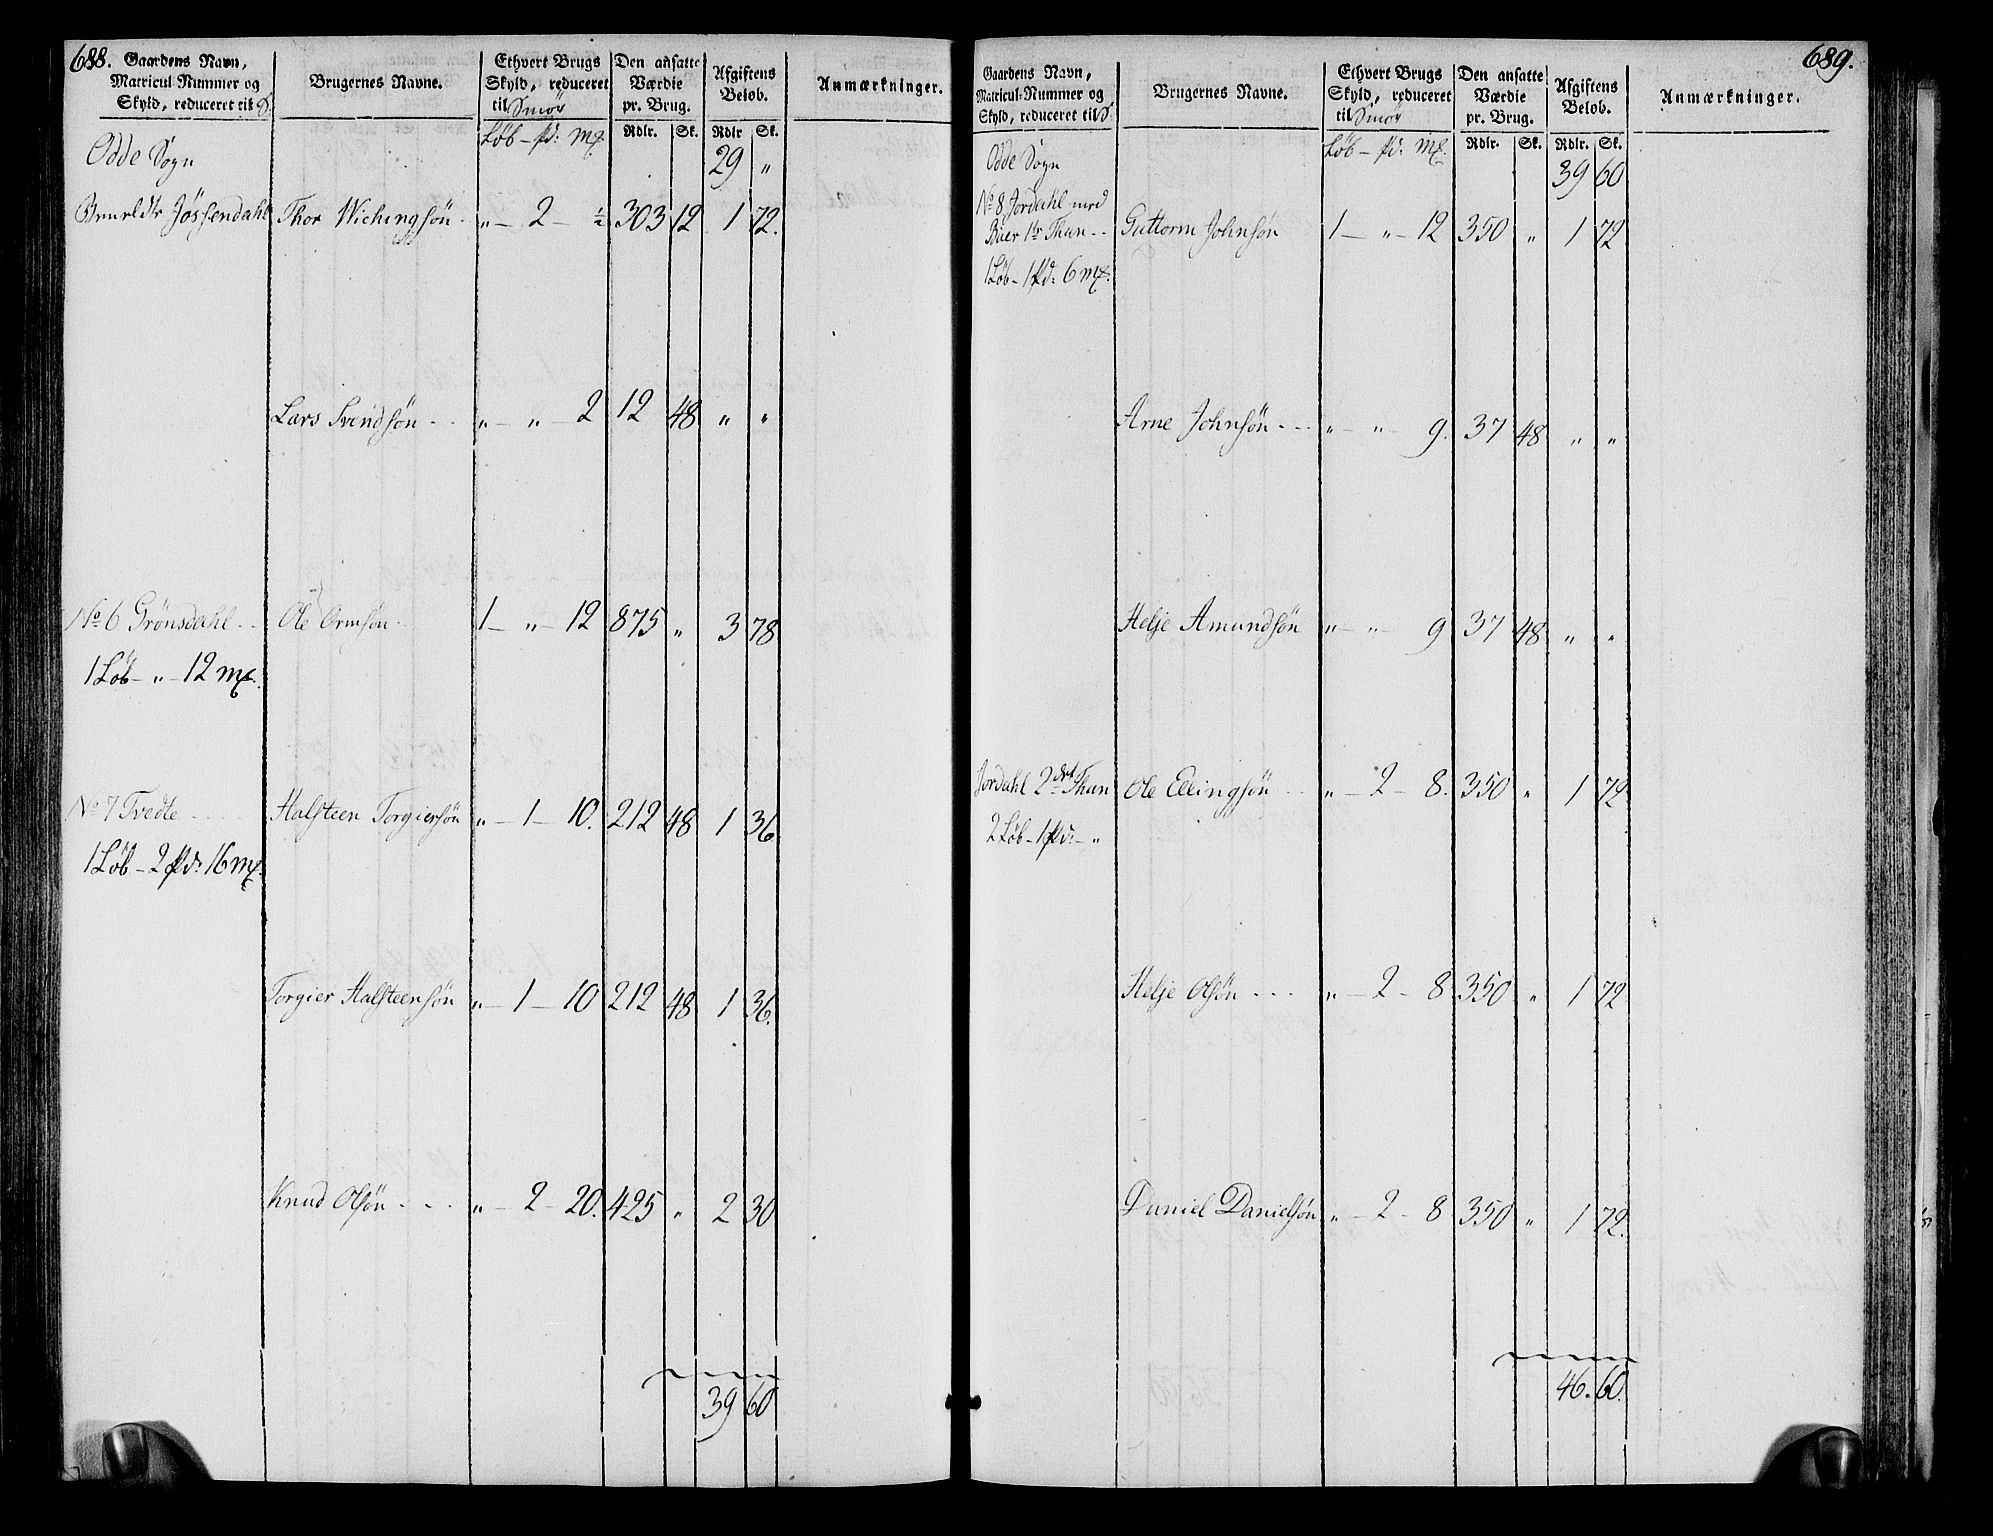 688.
Gaardens Navn, Matricul-Nummer og Skyld, reduceret til S. | Brugernes Navne. | Ethvert Brugs Skyld, reduceret til Smör | Den ansatte Værdie pr. Brug. | Afgiftens Beløb. | Anmærkninger.
Löb - pd: mk | Rdlr. | Sk. | Rdlr | Sk.
Odde Sogn 29 "
Jössendahl Thor Wichingsön - " - 2 - ½ 303 12 1 72.
Lars Svendsön - - " - " - 2 12 48 " "
No 6 Grönsdahl - - Ole Ormsön - 1 - " - 12 875 " 3 78
1 Löb - " - 12 mk.
No 7 Tvedte - - - Halsteen Torgiersön " - 1 - 10. 212 48 1 36.
1 Löb - 2 pd: 16 mk.
Torgier Halsteensön " - 1 - 10 212 48 1 36.
Knud Olsön - - - " - 2 - 20. 425 " 2 30
39 60
689.
Gaardens Navn, Matricul-Nummer og Skyld, reduceret til S. | Brugernes Navne. | Ethvert Brugs Skyld, reduceret til Smör | Den ansatte Værdie pr. Brug. | Afgiftens Beløb. | Anmærkninger.
Löb - pd: mk. | Rdlr. | Sk. | Rdlr. | Sk.
Odde Sogn 39 60
No 8 Jordahl med
Buer 1te Thun - - Guttorm Johnsön 1 - " - 12 350 " 1 72
1 Löb - 1 pd: 6 mk.
Arne Johnsön - - - " - " - 9. 37 48 " "
Helje Amundsön " - " - 9 37 48 " "
Jordahl 2det Thun Ole Ellingsön - - " - 2 - 8. 350 " 1 72
2 Löb - 1 pd: - "
Helje Olsön - - - " - 2 - 8 350 " 1 72
Daniel Danielsön " - 2 - 8 350 " 1 72.
46. 60.